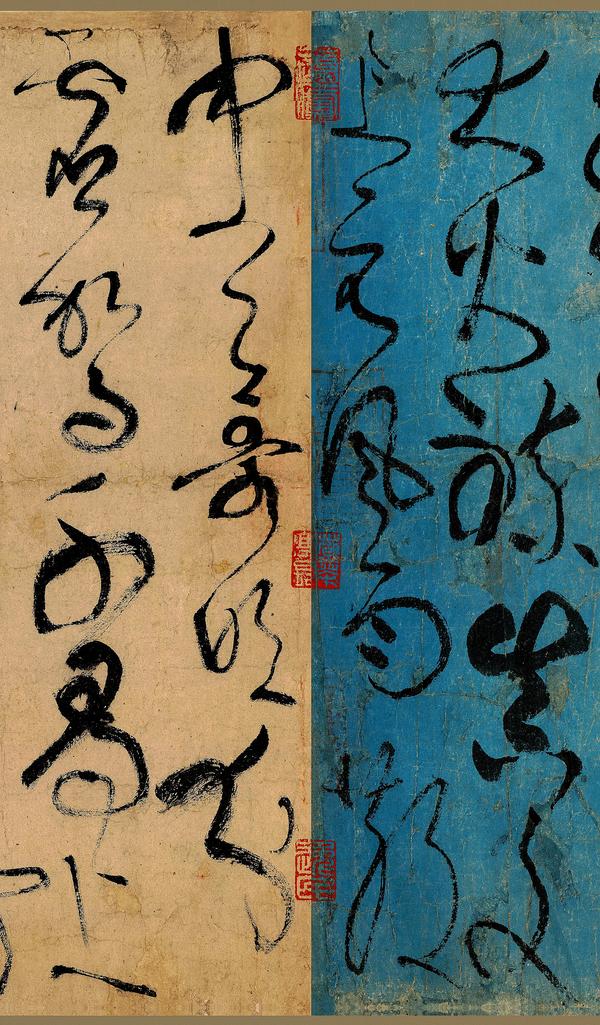 大火煉真文
上元風雨散
中天哥吹分
虛駕千尋上